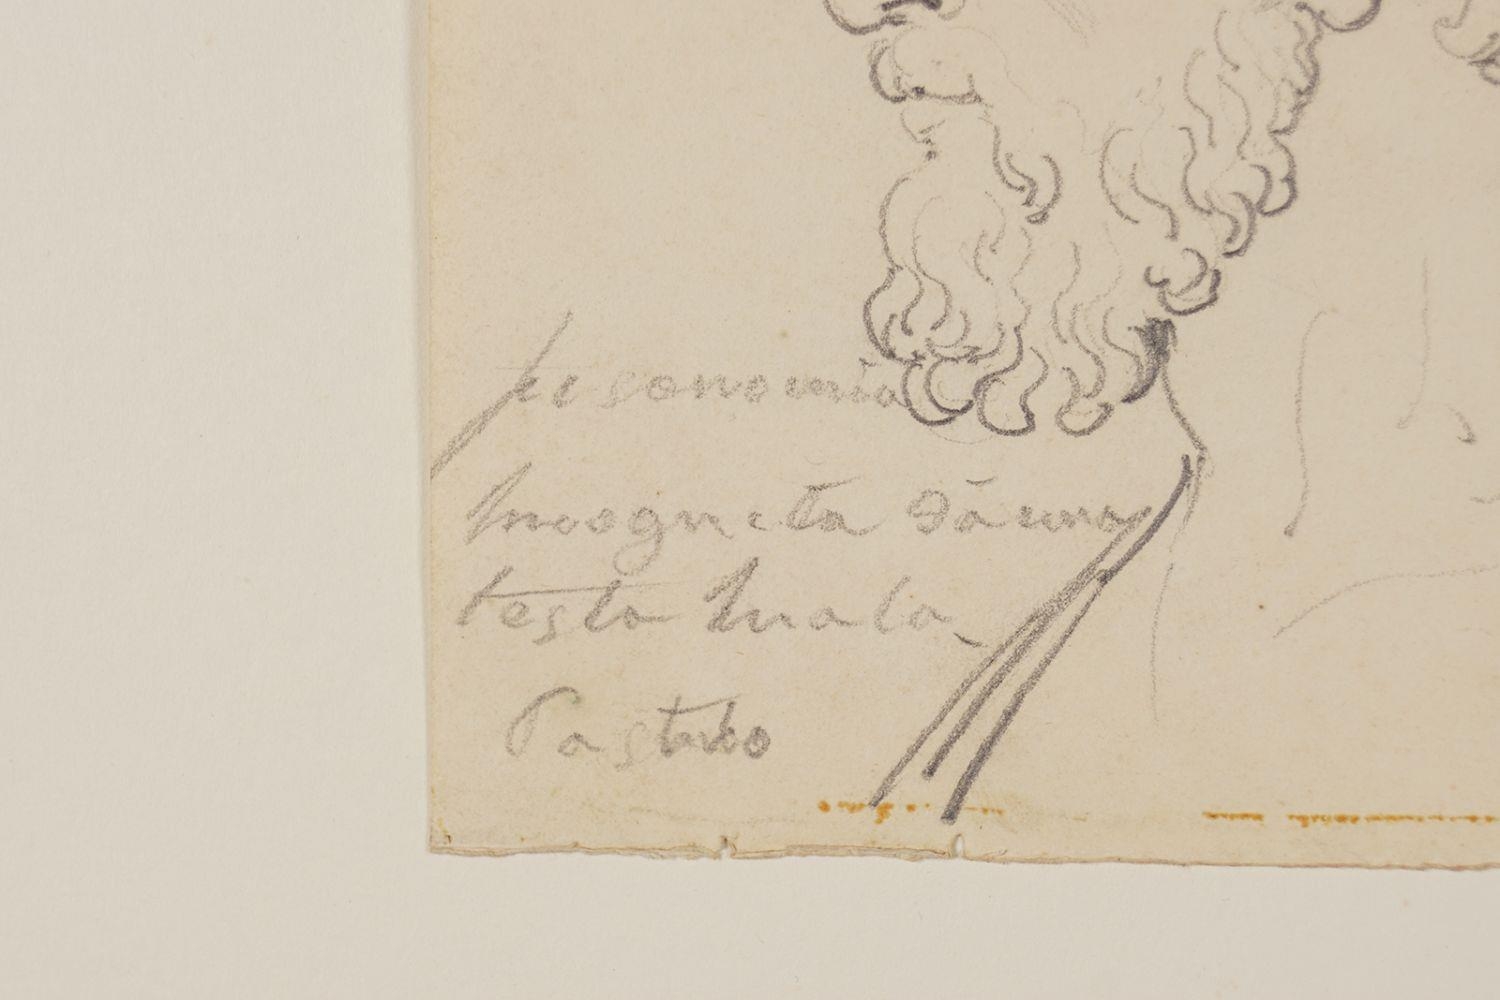 fisonomia
Incogneta dà una
testa trala
Pastuo